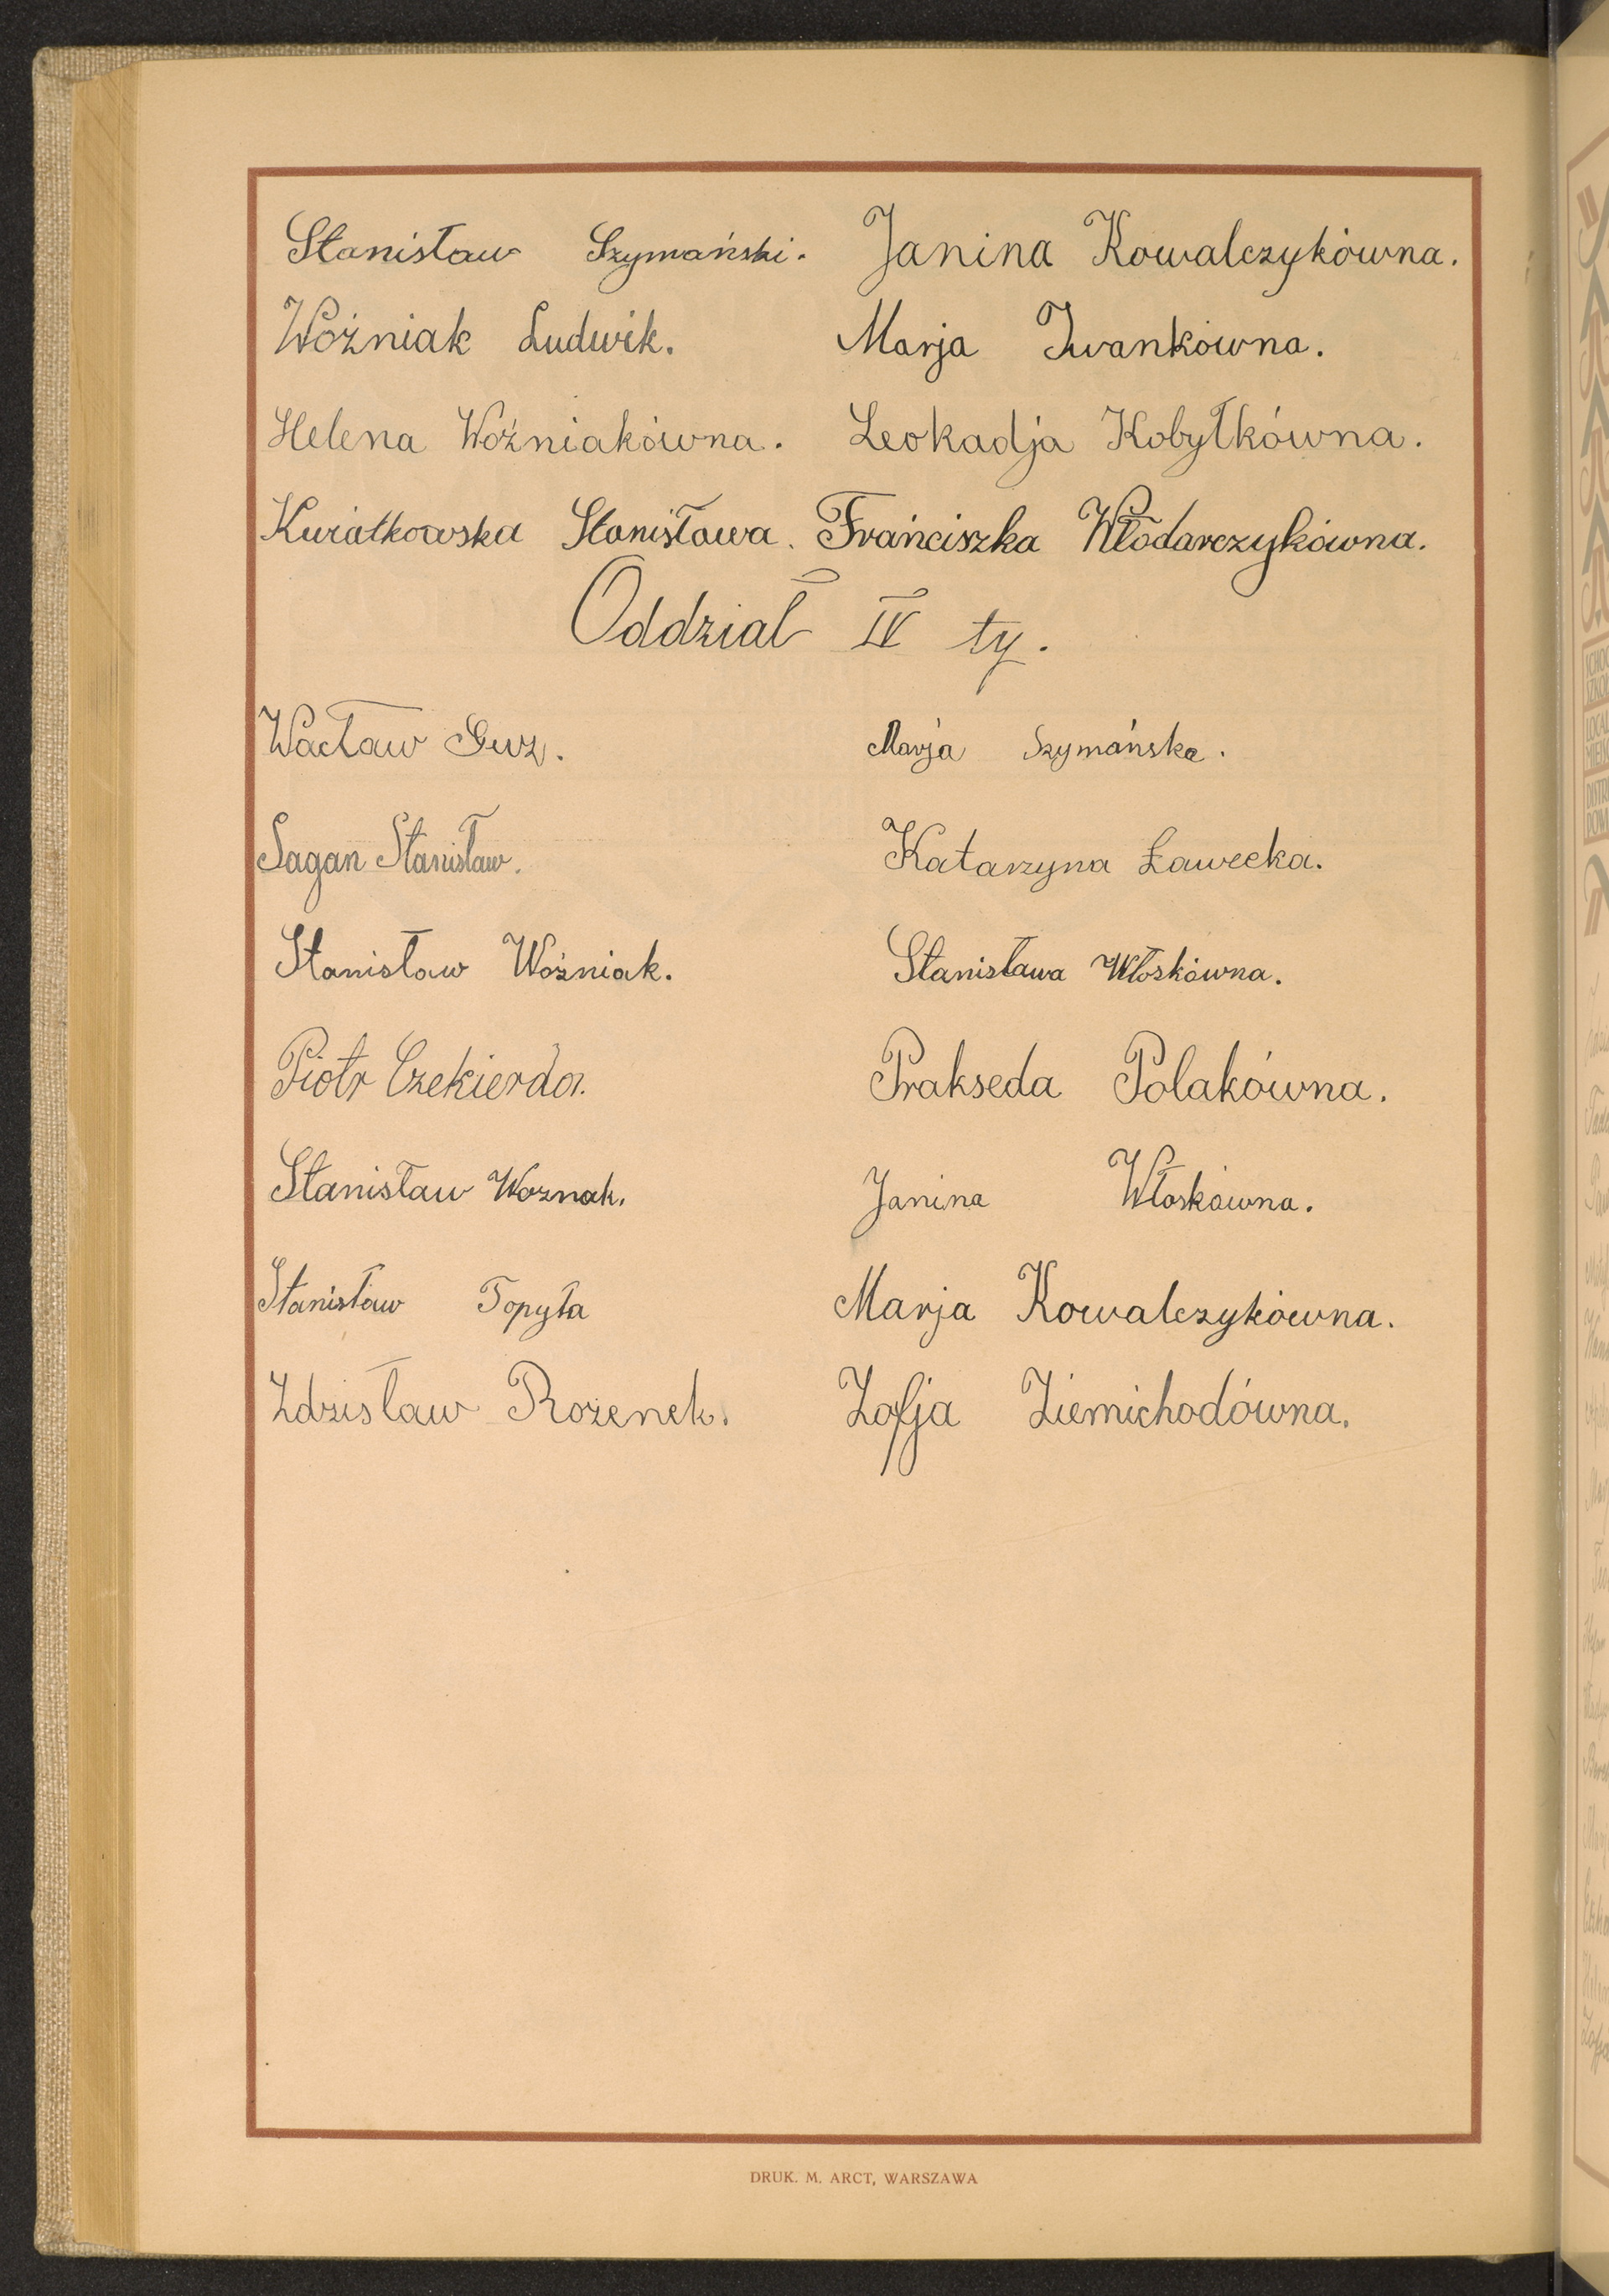 Stanisław Szymański. Janina Kowalczykówna.
Woźniak Ludwik. Marja Iwankówna.
Helena Woźniakówna. Leokadja Kobyłkówna.
Kwiatkowska Stanisława. Franciszka Włodarczykówna.
Oddział IV ty.
Wacław Guz. Marja Szymańska.
Sagan Stanisław. Katarzyna Ławecka.
Stanisław Woźniak. Stanisława Włoskówna.
Piotr Czekierda. Prakseda Polakówna.
Stanisław Woznak. Janina Włoskówna.
Stanisław Topyła Marja Kowalczykówna.
Zdzisław Rożenek. Zofja Ziemichodówna.
DRUK. M. ARCT, WARSZAWA